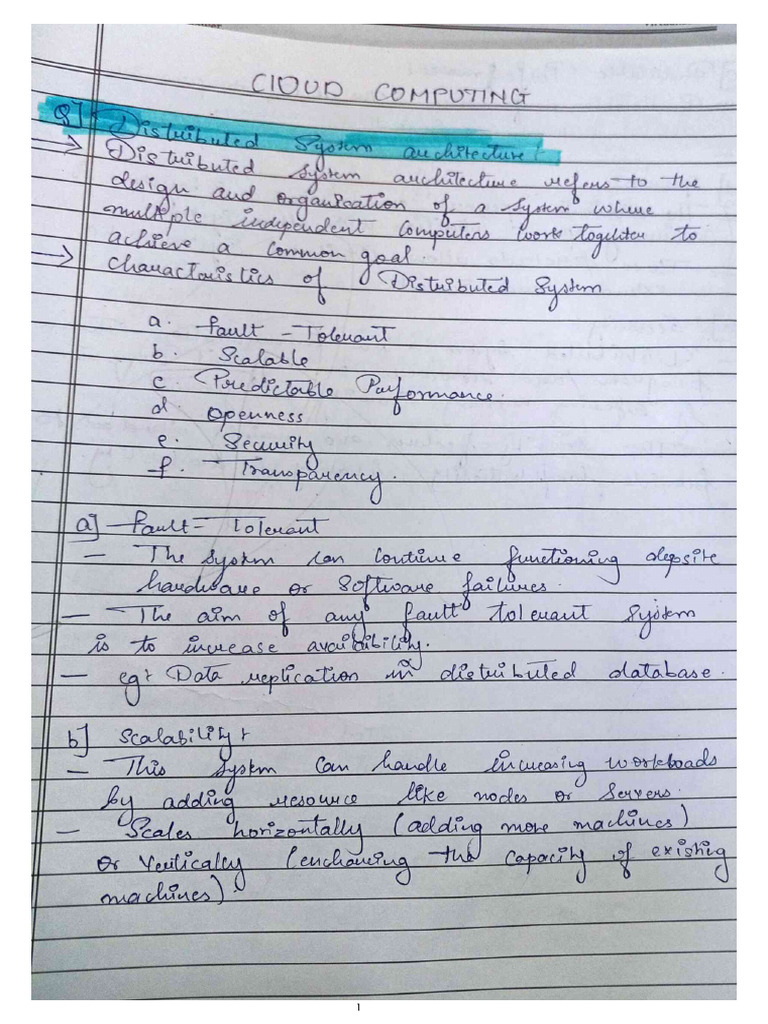 CLOUD COMPUTING
Q] Distributed System architecture:
→ Distributed System architecture refers to the
design and organization of a system where
multiple independent computers work togehter to
achieve a common goal
→ Characteristics of Distributed System
a. Fault-Tolerant
b. Scalable
c. Predictable Performance.
d openness
e. Security
f. Transparency.
a] Fault-Tolerant
- The System can continue functioning depsite
hardware or software failures.
- The aim of any fault tolerant System
is to increase
- eg: Data replication in distributed database.
b] Scalability:
- This System can handle increasing workloads
by adding resource like nodes or Servers.
- Scales horizontally (adding more machines)
or Vertically (enchancing the capacity of existing
machines).
1